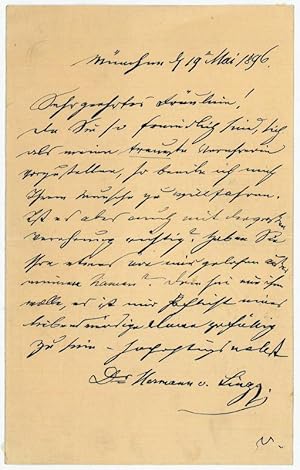 München d 19ᵗ Mai 1896.
Sehr geehrtes Fräulein!
Da Sie so freundlich sind, sich
als meine treueste Verehrerin
vorzustellen, so beeile ich mich
Ihrem Wunsche zu willfahren.
Ist es aber auch mit der großen
Verehrung richtig? Haben Sie
etwas von mir gelesen
meinen Namen? Dem sei wie ihm
wolle, es ist mir Pflicht einer
liebenswürdigen Dame gefällig
zu sein – hochachtungsvollst
Dr Hermann v. Lingg.